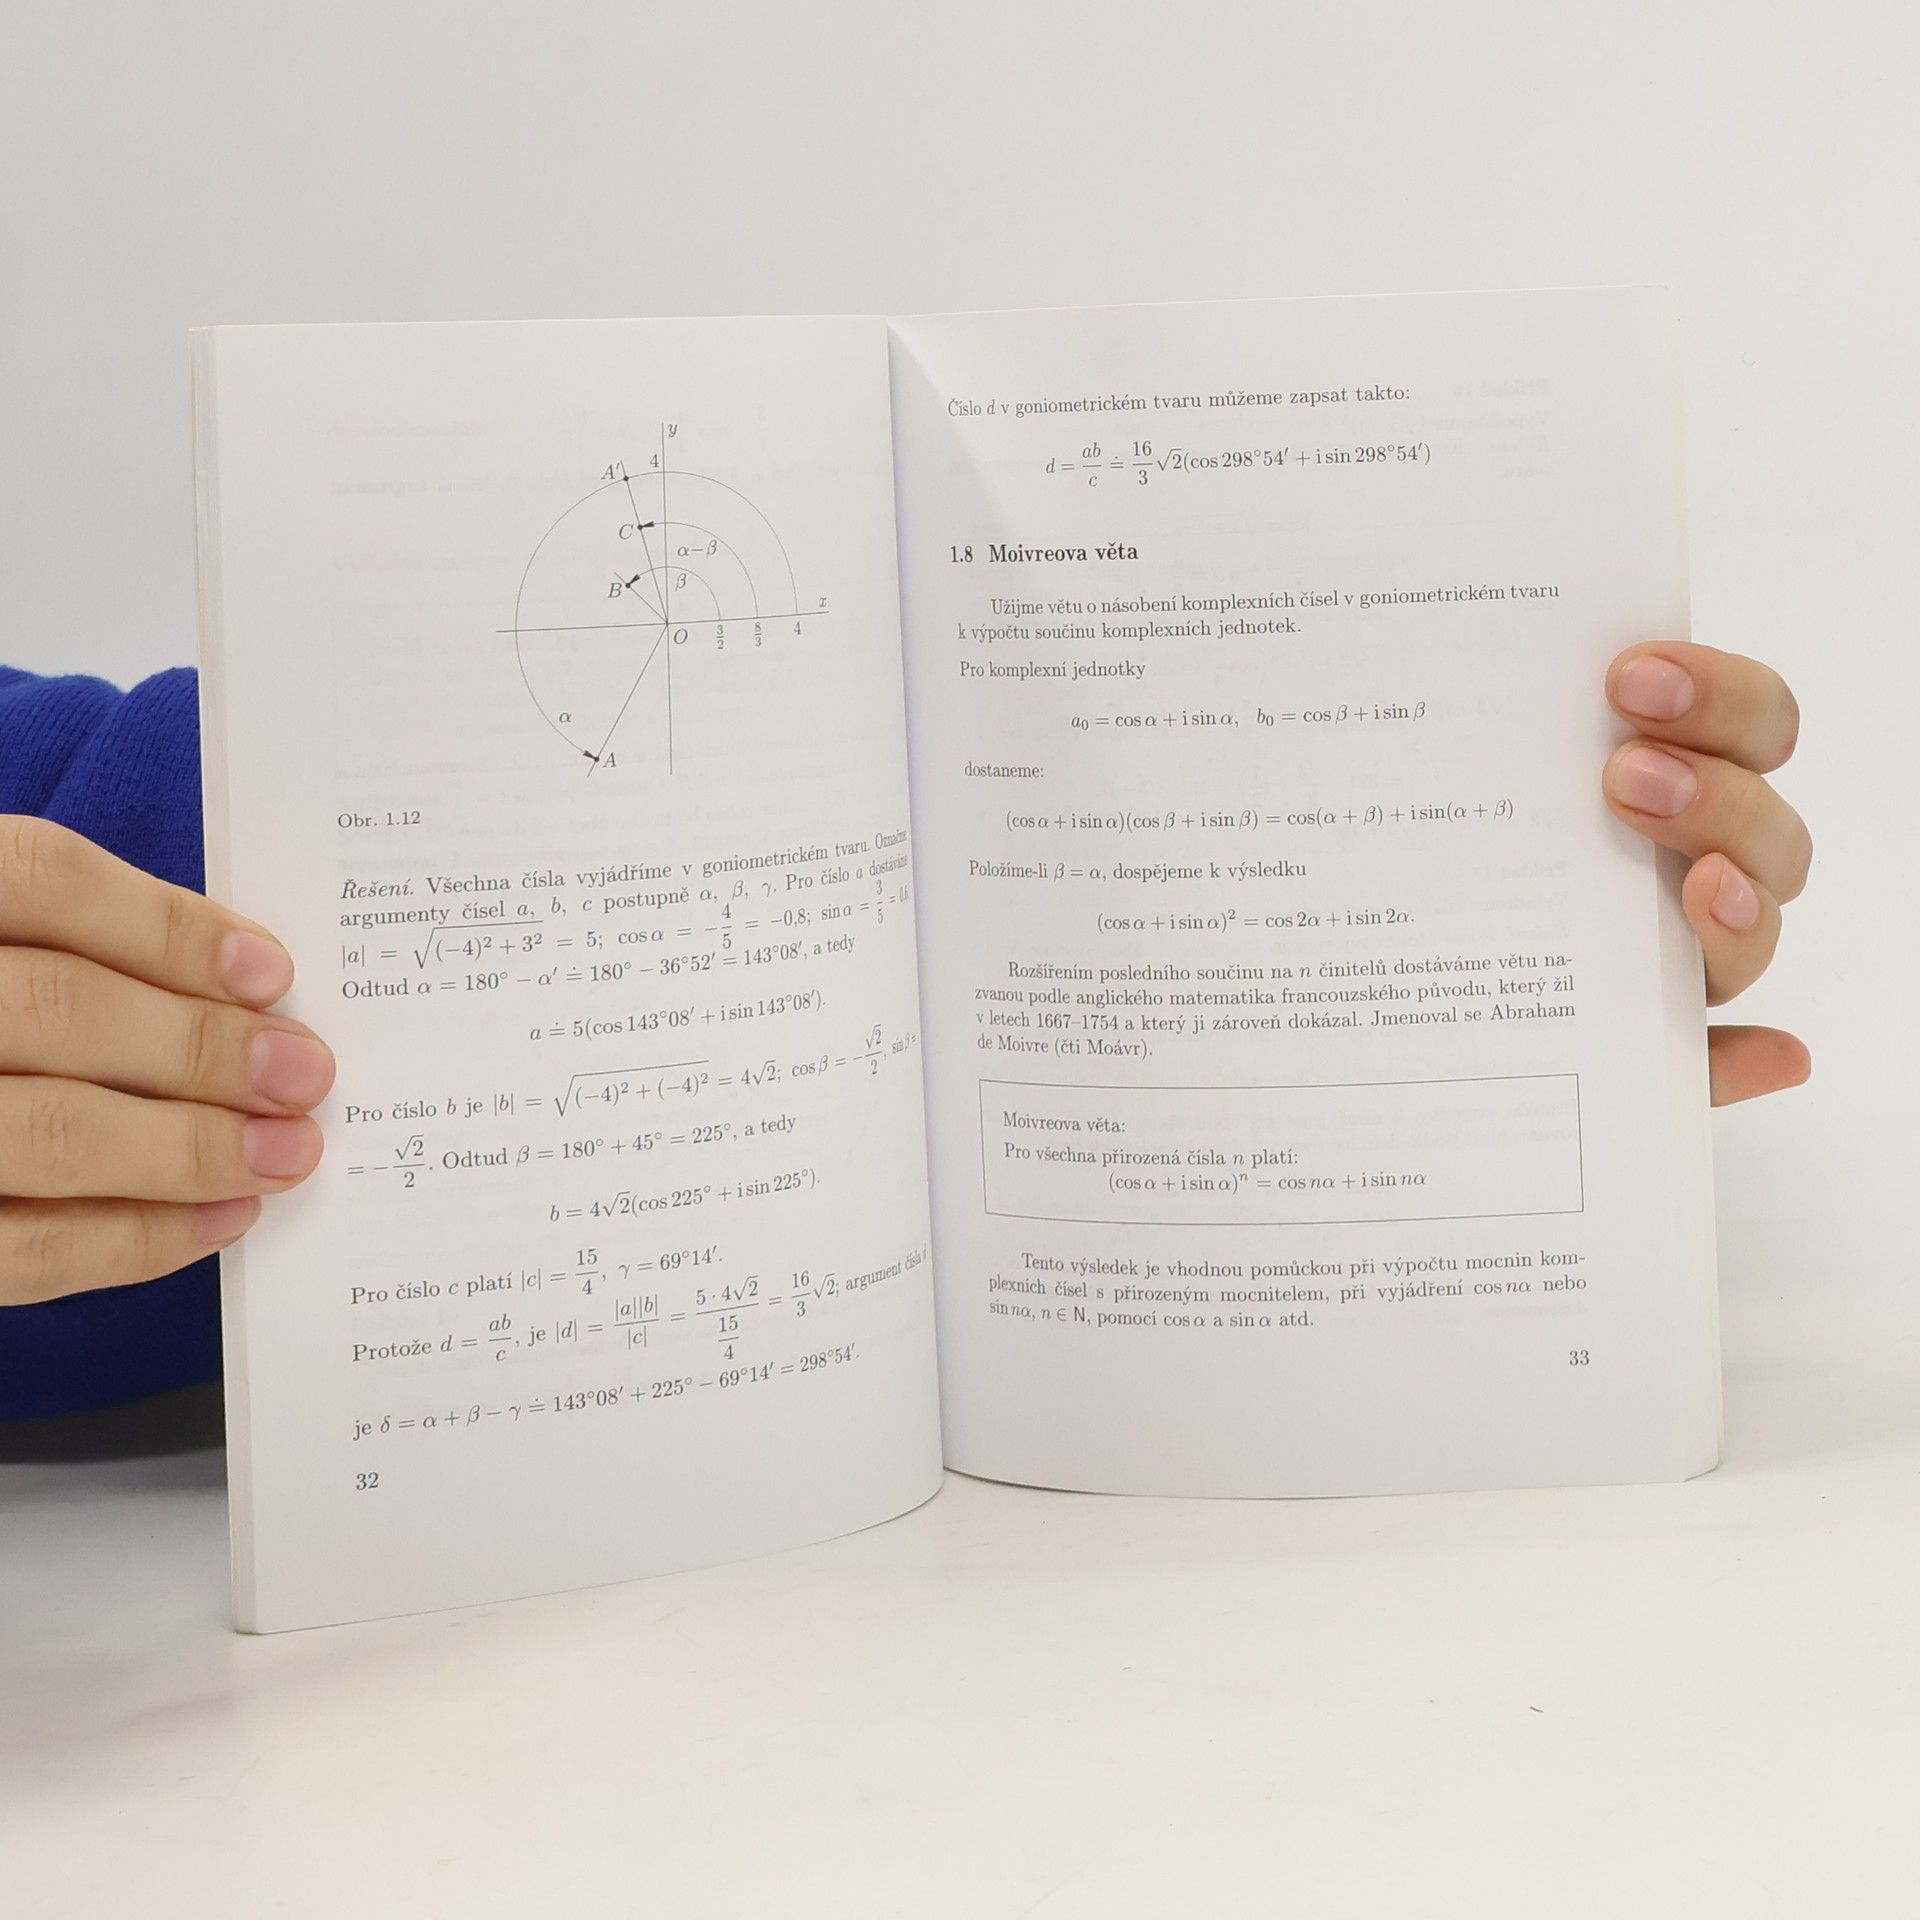 y
A' 4
C
α−β
B β
x
O 3/2 8/3 4
α
A
Obr. 1.12
Řešení. Všechna čísla vyjádříme v goniometrickém tvaru. Označme
argumenty čísel a, b, c postupně α, β, γ. Pro číslo a dostáváme
|a| = √((−4)² + 3²) = 5; cos α = −4/5 = −0,8; sin α = 3/5 = 0,6
Odtud α = 180° − α′ ≐ 180° − 36°52′ = 143°08′, a tedy
a ≐ 5(cos 143°08′ + i sin 143°08′).
Pro číslo b je |b| = √((−4)² + (−4)²) = 4√2; cos β = −√2/2, sin β =
= −√2/2. Odtud β = 180° + 45° = 225°, a tedy
b = 4√2(cos 225° + i sin 225°).
Pro číslo c platí |c| = 15/4, γ = 69°14′.
Protože d = ab/c, je |d| = |a||b|/|c| = (5 · 4√2)/(15/4) = 16/3 √2; argument čísla d
je δ = α + β − γ ≐ 143°08′ + 225° − 69°14′ = 298°54′.
32
Číslo d v goniometrickém tvaru můžeme zapsat takto:
d = ab/c ≐ 16/3 √2(cos 298°54′ + i sin 298°54′)
1.8 Moivreova věta
Užijme větu o násobení komplexních čísel v goniometrickém tvaru
k výpočtu součinu komplexních jednotek.
Pro komplexní jednotky
a₀ = cos α + i sin α, b₀ = cos β + i sin β
dostaneme:
(cos α + i sin α)(cos β + i sin β) = cos(α + β) + i sin(α + β)
Položíme-li β = α, dospějeme k výsledku
(cos α + i sin α)² = cos 2α + i sin 2α.
Rozšířením posledního součinu na n činitelů dostáváme větu na-
zvanou podle anglického matematika francouzského původu, který žil
v letech 1667–1754 a který ji zároveň dokázal. Jmenoval se Abraham
de Moivre (čti Moávr).
Moivreova věta:
Pro všechna přirozená čísla n platí:
(cos α + i sin α)ⁿ = cos nα + i sin nα
Tento výsledek je vhodnou pomůckou při výpočtu mocnin kom-
plexních čísel s přirozeným mocnitelem, při vyjádření cos nα nebo
sin nα, n ∈ N, pomocí cos α a sin α atd.
33